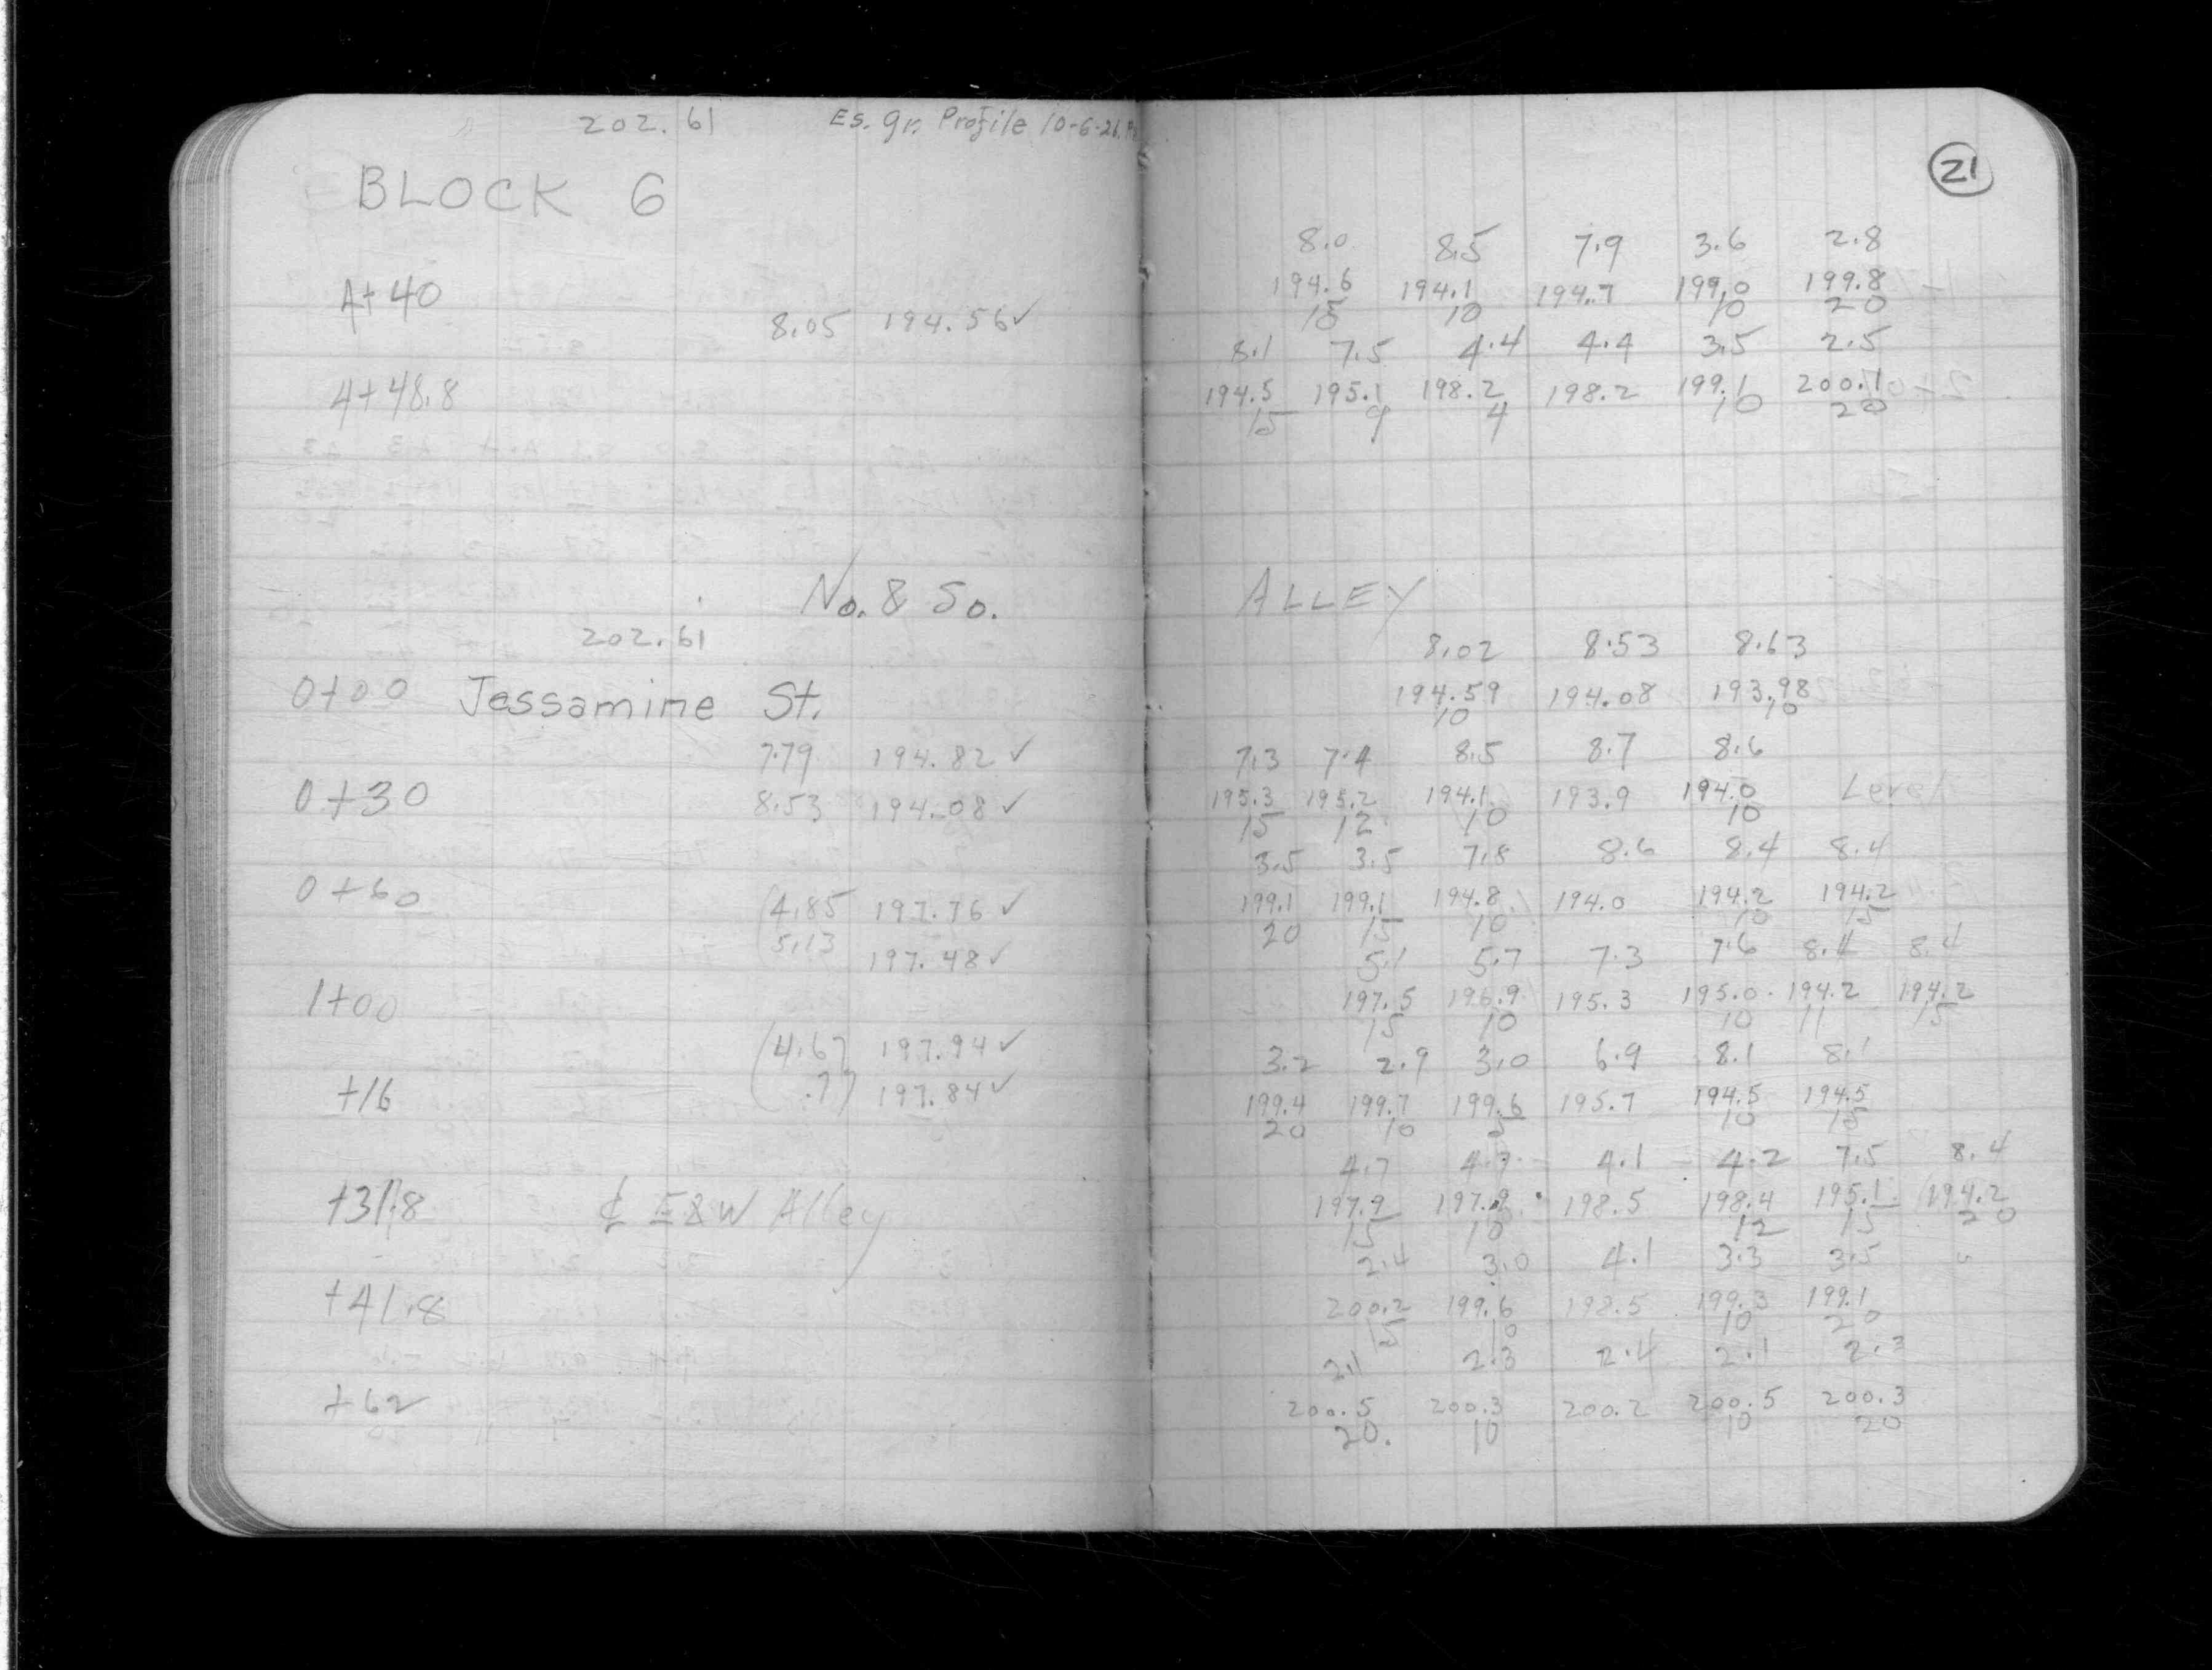 202.61 Es. gr. Profile 10-6-26
21
BLOCK 6
8.0 8.5 7.9 3.6 2.8
A+40 194.6 194.1 194.7 199.0 199.8
8.05 194.56✓ 15 10 10 20
8.1 7.5 4.4 4.4 3.5 2.5
4+48.8 194.5 195.1 198.2 198.2 199.1 200.1
15 9 4 10 20
No. & So. ALLEY
202.61 8.02 8.53 8.63
0+00 Jessamine St. 194.59 194.08 193.98
10 10
7.79 194.82✓ 7.3 7.4 8.5 8.7 8.6
0+30 8.53 194.08✓ 195.3 195.2 194.1 193.9 194.0 Level
15 12 10 10
3.5 3.5 7.8 8.6 8.4 8.4
0+60 (4.85 197.76✓ 199.1 199.1 194.8 194.0 194.2 194.2
20 15 10 10 15
5.13 197.48✓ 5.1 5.7 7.3 7.6 8.4 8.4
1+00 197.5 196.9 195.3 195.0 194.2 194.2
15 10 10 11 15
(4.67 197.94✓ 3.2 2.9 3.0 6.9 8.1 8.1
+16 .77) 197.84✓ 199.4 199.7 199.6 195.7 194.5 194.5
20 10 5 10 15
4.7 4.7 4.1 4.2 7.5 8.4
+31.8 ℄ E&W Alley 197.9 197.9 198.5 198.4 195.1 194.2
15 10 12 15 20
2.4 3.0 4.1 3.3 3.5
+41.8 200.2 199.6 198.5 199.3 199.1
15 10 10 20
2.1 2.3 2.4 2.1 2.3
+62 200.5 200.3 200.2 200.5 200.3
20. 10 10 20